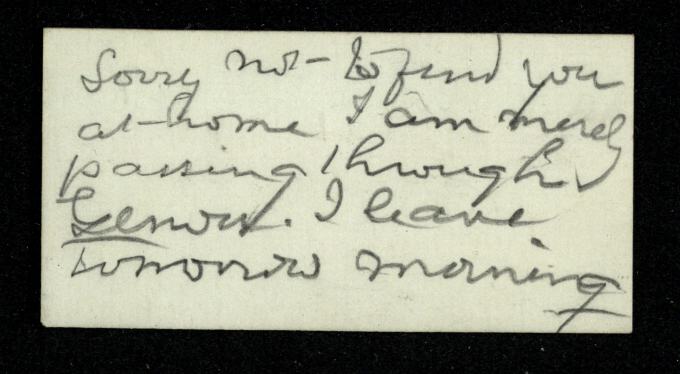 Sorry not to find you
at home I am merely
passing through
Genoa. I leave
tomorrow morning